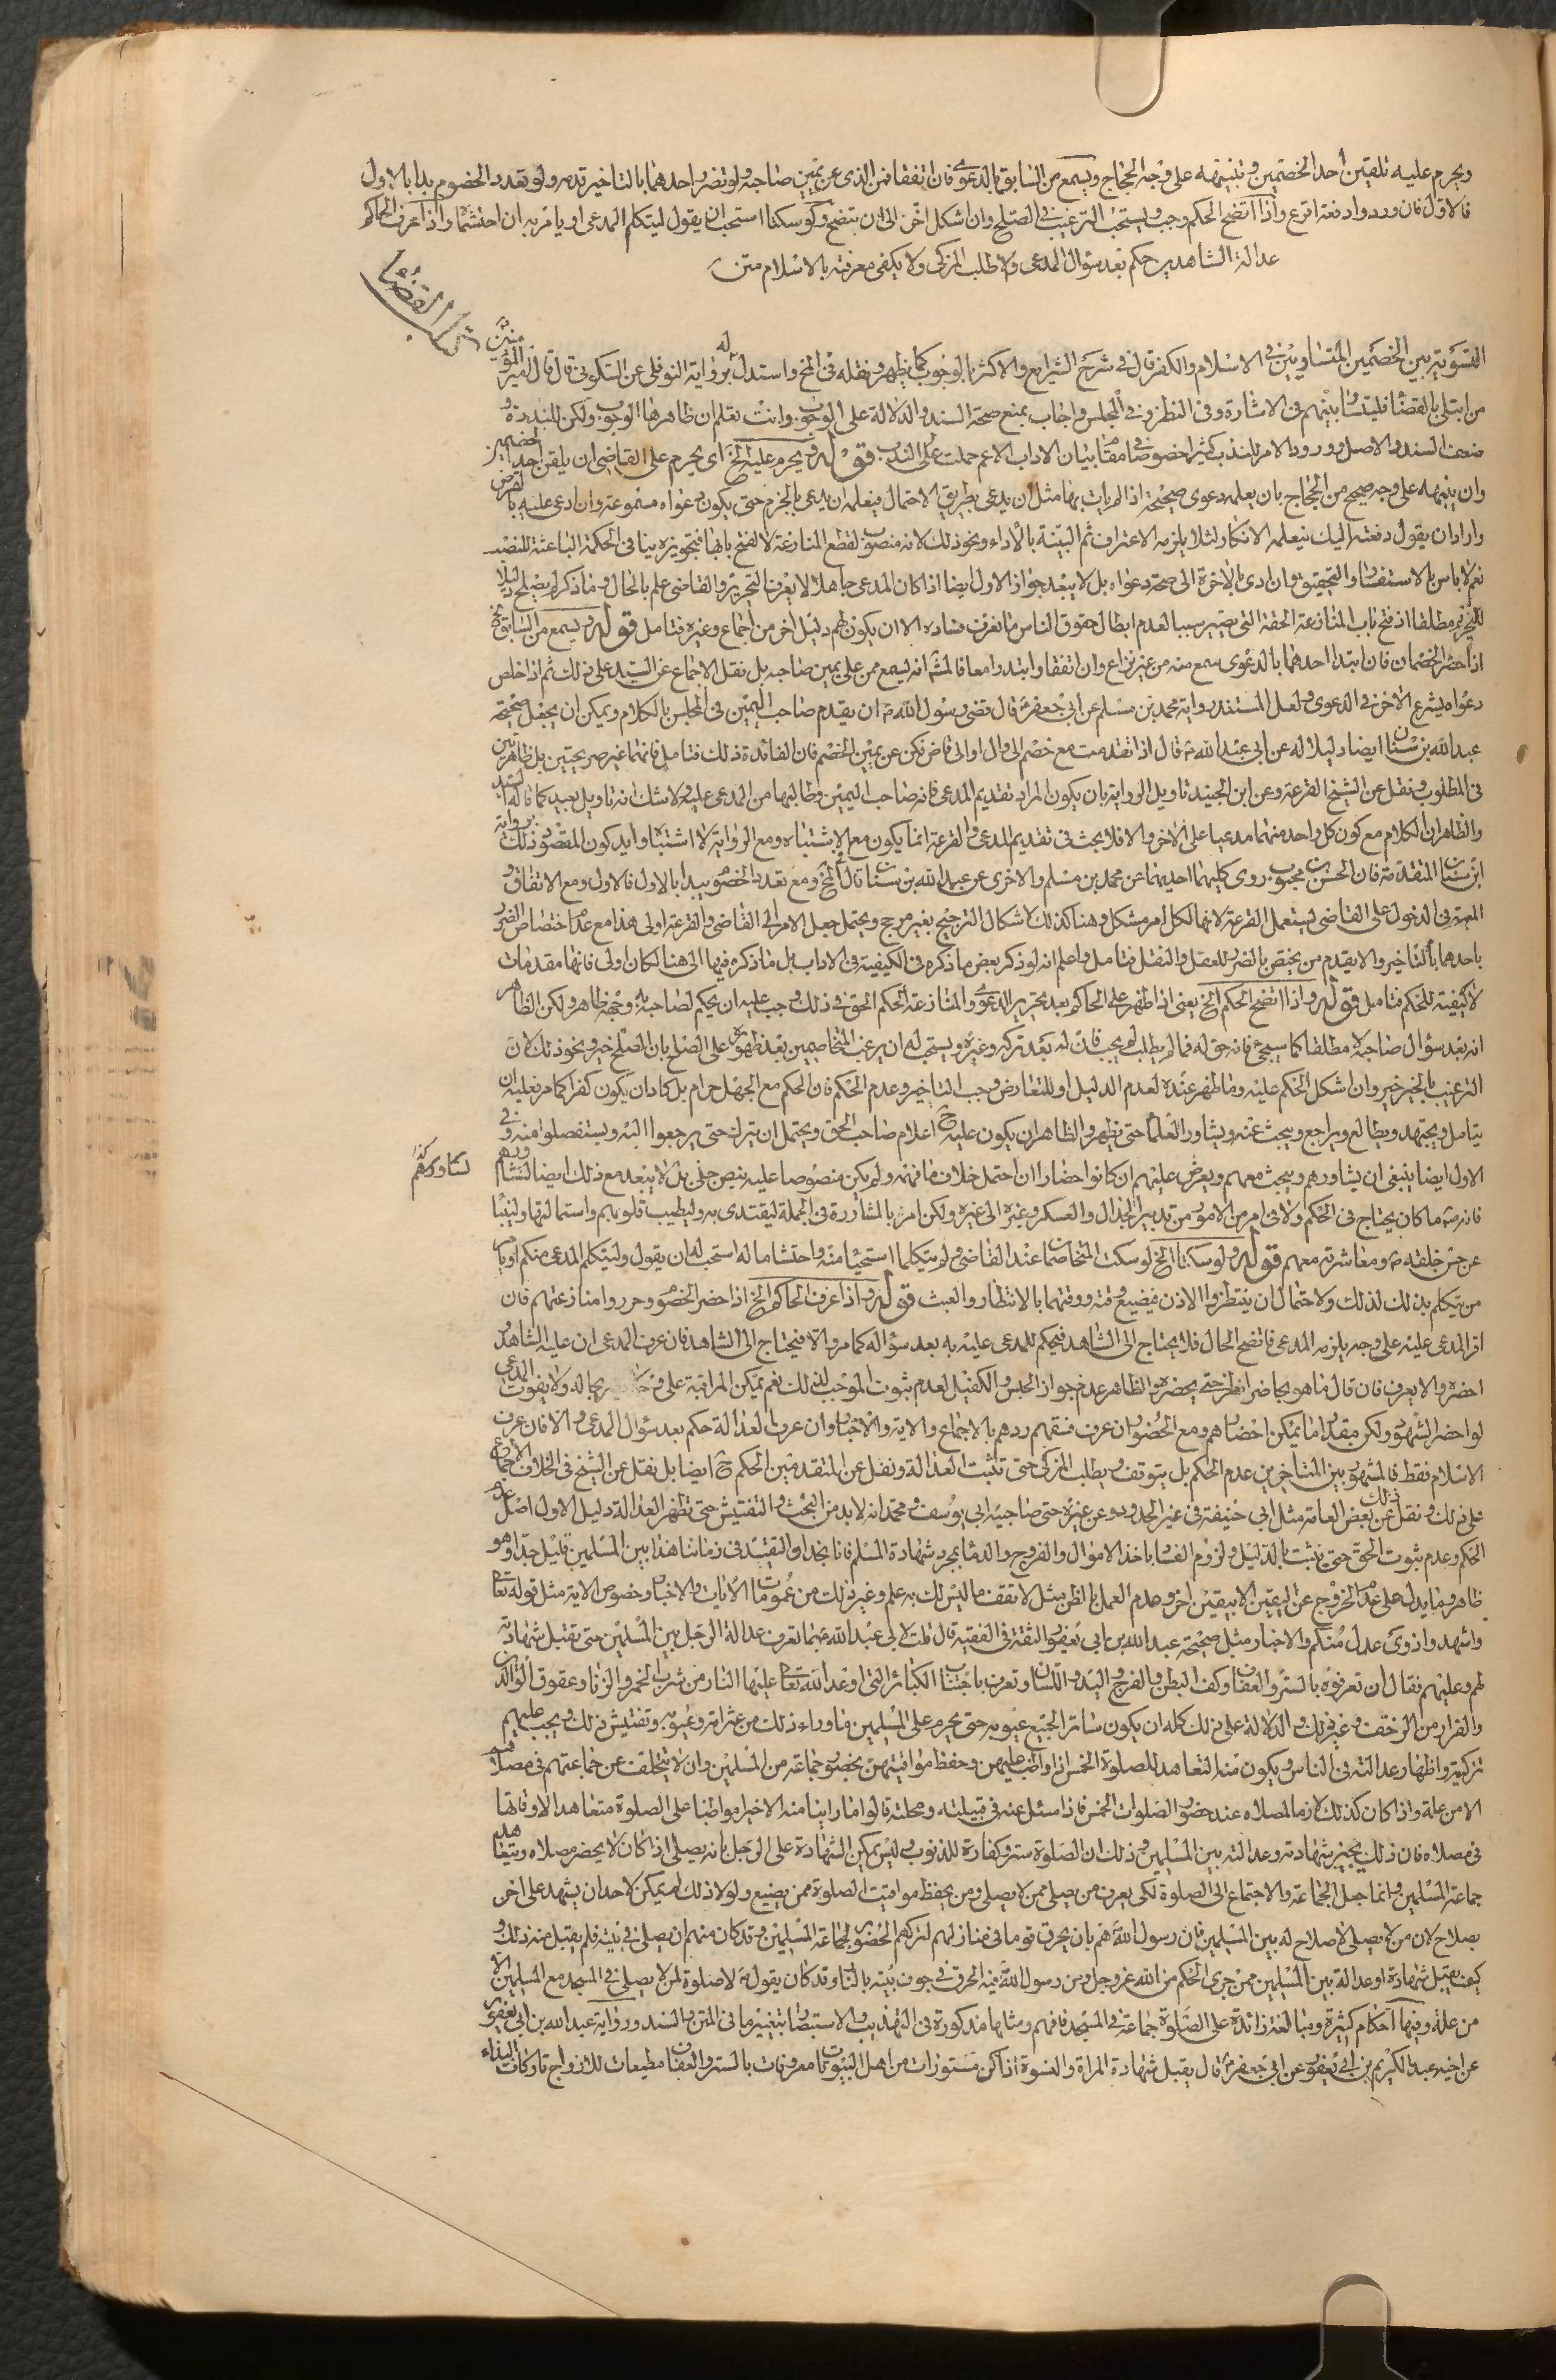 ويحرم عليه تلقين أحد الخصمين وتنبيهه على وجه الحجاج ويسمع من السابق بالدعوى فان اتفقا فمن الذى عن يمين صاحبه ولو تضرر احدهما بالتاخير قدمه ولو تعدد الخصوم بدا بالاول
فالاول فان وردوا دفعة اقرع واذا اتضح الحكم وجب ويستحب الترغيب فى الصلح وان اشكل اخر الى ان يتضح ولو سكتا استحب ان يقول ليتكلم المدعى او يامر به ان احتشماه واذا عرف الحاكم
عدالة الشاهدين حكم بعد سؤال المدعى والا طلب المزكى ولا يكفى معرفته بالاسلام متن
كتاب القضا
التسوية بين الخصمين المتساويين فى الاسلام والكفر قال فى شرح الشرايع والاكثر بالوجوب كما يظهر ونقله فى المخ واستدل له برواية النوفلى عن السكونى قال قال امير المؤمنين
من ابتلى بالقضا فليتسا بينهم فى الاشارة وفى النظر وفى المجلس واجاب بمنع صحة السند والدلالة على الوجوب وانت تعلم ان ظاهرها الوجوب ولكن للندرة و
ضعف السند والاصل وورود الامر للندب كثيرا خصوصا فى مقام بيان الاداب الاعم حملت على الندب قوله ويحرم عليه الخ اى يحرم على القاضى ان يلقن احد الخصمين
وان ينبهه على وجه صحيح من الحجاج بان يعلمه دعوى صحيحة اذا لم يات بها مثل ان يدعى بطريق الاحتمال فيعلمه ان يدعى بالجزم حتى يكون دعواه مسموعة وان ادعى عليه بالقرض
واراد ان يقول دفعته اليك فيعلمه الانكار لئلا يلزمه الاعتراف ثم البينة بالاداء ونحو ذلك لانه منصوب لقطع المنازعة لا لفتح بابها فتجويزه ينافى الحكمة الباعثة للنصب
نعم لا باس بالاستفسار والتحقيق وان ادى بالاخرة الى صحة دعواه بل لا يبعد جواز الاول ايضا اذا كان المدعى جاهلا لا يعرف التحرير والقاضى علم بالحال وما ذكر لم يصلح دليلا
للتحريم مطلقا اذ فتح باب المنازعة الحقة التى تصير سببا لعدم ابطال حقوق الناس ما نعرف فساده الا ان يكون لهم دليل اخر من اجماع وغيره فتامل قوله ويسمع من السابق الخ
اذا حضر الخصمان فان ابتدا احدهما بالدعوى سمع منه من غير نزاع وان اتفقا وابتدءا معا فالمش انه ليسمع ممن على يمين صاحبه بل نقل الاجماع عن السيد على ذلك ثم اذا خلص
دعواه ليشرع الاخر فى الدعوى ولعل المستند رواية محمد بن مسلم عن ابى جعفر قال قضى رسول الله ان يقدم صاحب اليمين فى المجلس بالكلام ويمكن ان يجعل صحيحة
عبدالله بن سنان ايضا دليلا له عن ابى عبد الله قال اذا تقدمت مع خصم الى وال او الى قاض فكن عن يمين الخصم فان الفائدة ذلك فتامل فانهما غير صريحتين بل ظاهرتين
فى المطلوب ونقل عن الشيخ القرعة وعن ابن الجنيد تاويل الرواية بان يكون المراد تقديم المدعى فانه صاحب اليمين وطالبها من المدعى عليه ولا شك انه تاويل بعيد كما قاله السيد
والظاهر ان الكلام مع كون كل واحد منهما مدعيا على الاخر والا فلا بحث فى تقديم المدعى والقرعة انما يكون مع الاشتباه ومع الرواية لا اشتباه وايد كون المقصود ذلك برواية
ابن سنان المتقدمة فان الحسن بن محبوب روى كليهما احديهما عن محمد بن مسلم والاخرى عن عبدالله بن سنان قال الخ ومع تعدد الخصوم يبدا بالاول فالاول ومع الاتفاق و
المعية فى الدخول على القاضى يستعمل القرعة لانها لكل امر مشكل وهنا كذلك لاشكال الترجيح بغير مرجح ويحتمل جعل الامر الى القاضى والقرعة اولى هذا مع عدم اختصاص الضرر
باحدهما بالتاخير والا يقدم من يختص بالضرر للعقل والنقل فتامل واعلم انه لو ذكر بعض ما ذكره فى الكيفية فى الاداب بل ما ذكره فيها الى هنا لكان اولى فانها مقدمات
لا كيفية للحكم فتامل قوله واذا اتضح الحكم الخ يعنى اذا ظهر على الحاكم بعد تحرير الدعوى والمنازعة الحكم الحق فى ذلك وجب عليه ان يحكم لصاحبه به وجهه ظاهر ولكن الظاهر
انه بعد سؤال صاحبه لا مطلقا كما سيجئ فانه حق له فما لم يطلب لم يجب فان له بعد تركه وغيره ويستحب له ان يرغب المتخاصمين بعد ظهوره على الصلح بان الصلح خير ونحو ذلك لان
الترغيب بالخير خير وان اشكل الحكم عليه وما ظهر عنده لعدم الدليل او للتعارض وجب التاخير وعدم الحكم فان الحكم مع الجهل حرام بل كاد ان يكون كفرا كما مر فعليه ان
يتامل ويجتهد ويطالع ويراجع ويبحث عنه ويشاور العلماء حتى يظهر والظاهر ان يكون عليه ح اعلام صاحب الحق ويحتمل ان يترك حتى يرجعوا اليه ويستفصلوا منه وفى
الاول ايضا ينبغى ان يشاورهم ويبحث معهم ويعرض عليهم ان كانوا حضارا ان احتمل خلاف ما فهمه ولم يكن منصوصا عليه بنص جلى بل لا يبعد مع ذلك ايضا لنشاورهم
فانه ما كان يحتاج فى الحكم ولا فى امر من الامور من تدبير الجدال والعسكر وغيره الى غيره ولكن امر بالمشاورة فى الجملة ليقتدى به وليطيب قلوبهم واستمالتها وليبنا
عن حسن خلقه ومعاشرته معهم قوله ولو سكتا الخ لو سكت المتخاصمان عند القاضى ولم يتكلما استحيا منه واحتشاما له استحب له ان يقول وليتكلم المدعى منكم او يامر
من يتكلم بذلك لذلك ولاحتمال ان ينتظروا الاذن فيضيع وقته ووقتهما بالانتظار والعبث قوله واذا عرف الحاكم الخ اذا حضر الخصوم وحرروا منازعتهم فان
اقر المدعى عليه على وجه يلزمه المدعى فاتضح الحال فلا يحتاج الى الشاهد فيحكم للمدعى عليه به بعد سؤاله كما مر والا فيحتاج الى الشاهد فان عرف المدعى ان عليه الشاهد
احضره والا يعرف فان قال ما هو بحاضر انظر حتى يحضره والظاهر عدم جواز الحبس والكفيل لعدم ثبوت الموجب لذلك نعم يمكن المراقبة على بحاله ولا يفوت المدعى
لو احضر الشهود ولكن بقدر ما يمكن احضارهم ومع الحضور ان عرف فسقهم ردهم بالاجماع والاية والاخبار وان عرف العدالة حكم بعد سؤال المدعى والا فان عرف
الاسلام فقط فالمشهور بين المتاخرين عدم الحكم بل يتوقف ويطلب المزكى حتى تثبت العدالة ونقل عن المتقدمين الحكم ح ايضا بل نقل عن الشيخ فى الخلاف الاجماع
على ذلك ونقل ذلك عن بعض العامة مثل ابى حنيفة فى غير الحدود وعن غيره حتى صاحبيه ابى يوسف ومحمد انه لا بد من البحث والتفتيش حتى تظهر العدالة دليل الاول اصل عدم
الحكم وعدم ثبوت الحق حتى يثبت بالدليل ولزوم الفساد باخذ الاموال والفروج والدما بمجرد شهادة المسلم فانا نجد ان التقيد فى زماننا هذا بين المسلمين قليل جدا وهو
ظاهر وما يدل على عدم الخروج عن اليقين الا بيقين اخر وعدم العمل بالظن مثل لا تقف ما ليس لك به علم وغير ذلك من عمومات الايات والاخبار وخصوص الاية مثل قوله تعالى
واشهدوا ذوى عدل منكم والاخبار مثل صحيحة عبدالله بن ابى يعفور الثقة فى الفقيه قال قلت لابى عبدالله بما تعرف عدالة الرجل بين المسلمين حتى تقبل شهادته
لهم وعليهم فقال ان تعرفوه بالستر والعفاف وكف البطن والفرج واليد واللسان وتعرف باجتناب الكبائر التى اوعد الله تعالى عليها النار من شرب الخمر والزنا وعقوق الوالدين
والفرار من الزحف وغير ذلك والدلالة على ذلك كله ان يكون ساترا لجميع عيوبه حتى يحرم على المسلمين ما وراء ذلك من عثراته وعيوبه وتفتيش ذلك ويجب عليهم
تزكيته واظهار عدالته فى الناس ويكون منه التعاهد للصلوة الخمس اذا واظب عليهن وحفظ مواقيتهن بحضور جماعة من المسلمين وان لا يتخلف عن جماعتهم فى مصلاهم
الا من علة واذا كان كذلك لازما لمصلاه عند حضور الصلوات الخمس فاذا سئل عنه فى قبيلته ومحلته قالوا ما راينا منه الا خيرا مواظبا على الصلوة متعاهدا لاوقاتها
فى مصلاه فان ذلك يجيز شهادته وعدالته بين المسلمين وذلك ان الصلوة ستر وكفارة للذنوب وليس يمكن الشهادة على الرجل بانه يصلى اذا كان لا يحضر مصلاه ويتعاهد
جماعة المسلمين وانما جعل الجماعة والاجتماع الى الصلوة لكى يعرف من يصلى ممن لا يصلى ومن يحفظ مواقيت الصلوة ممن يضيع ولولا ذلك لم يمكن لاحد ان يشهد على اخر
بصلاح لان من لا يصلى لا صلاح له بين المسلمين فان رسول الله هم بان يحرق قوما فى منازلهم لتركهم الحضور لجماعة المسلمين وقد كان منهم ان يصلى فى بيته فلم يقبل منه ذلك و
كيف يقبل شهادة او عدالة بين المسلمين ممن جرى الحكم من الله عز وجل ومن رسول الله فيه الحرق فى جوف بيته بالنار وقد كان يقول لا صلوة لمن لا يصلى فى المسجد مع المسلمين الا
من علة وفيها احكام كثيرة ومبالغة زائدة على الصلوة جماعة فى المسجد فافهم ومثلها مذكورة فى التهذيب والاستبصار بتغيير ما فى المتن والسند ورواية عبدالله بن ابى يعفور
عن اخيه عبدالكريم بن ابى يعفور عن ابى جعفر قال يقبل شهادة المراة والنسوة اذا كن مستورات من اهل البيوتات معروفات بالستر والعفاف مطيعات للازواج تاركات البذاء